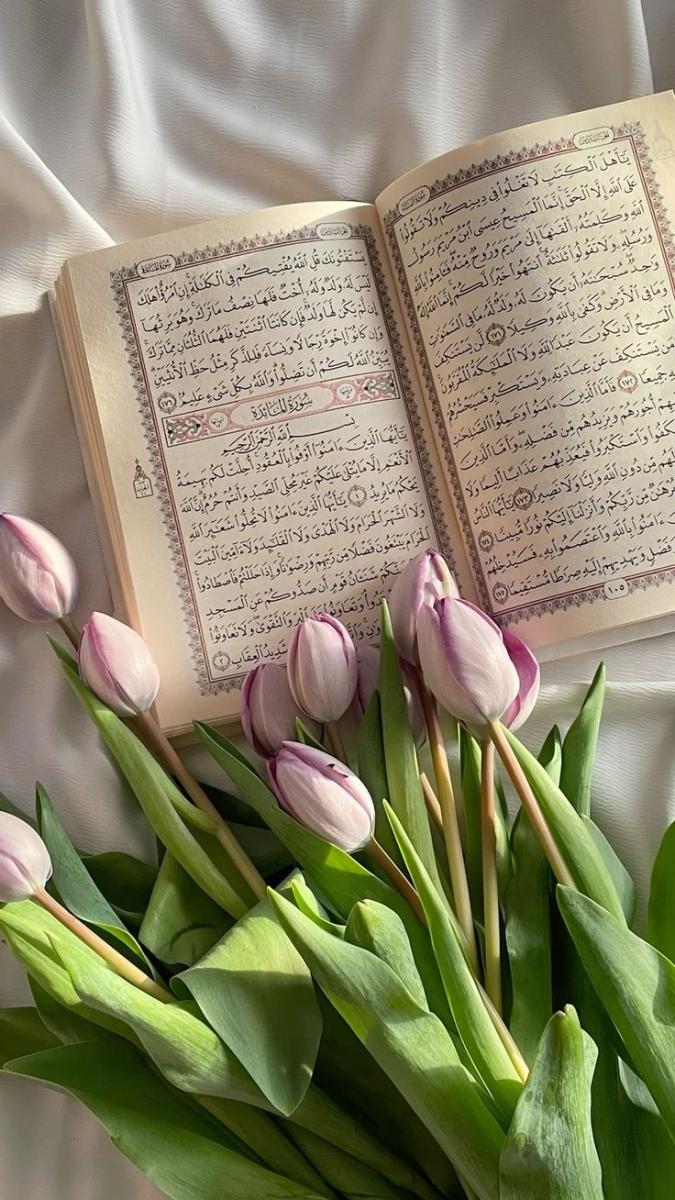 يَٰٓأَهْلَ ٱلْكِتَٰبِ لَا تَغْلُوا۟ فِى دِينِكُمْ وَلَا تَقُولُوا۟
عَلَى ٱللَّهِ إِلَّا ٱلْحَقَّ إِنَّمَا ٱلْمَسِيحُ عِيسَى ٱبْنُ مَرْيَمَ رَسُولُ
ٱللَّهِ وَكَلِمَتُهُۥٓ أَلْقَىٰهَآ إِلَىٰ مَرْيَمَ وَرُوحٌ مِّنْهُ فَـَٔامِنُوا۟ بِٱللَّهِ
وَرُسُلِهِۦ وَلَا تَقُولُوا۟ ثَلَٰثَةٌ ٱنتَهُوا۟ خَيْرًا لَّكُمْ إِنَّمَا ٱللَّهُ إِلَٰهٌ
وَٰحِدٌ سُبْحَٰنَهُۥٓ أَن يَكُونَ لَهُۥ وَلَدٌ لَّهُۥ مَا فِى ٱلسَّمَٰوَٰتِ
وَمَا فِى ٱلْأَرْضِ وَكَفَىٰ بِٱللَّهِ وَكِيلًا ١٧١ لَّن يَسْتَنكِفَ
ٱلْمَسِيحُ أَن يَكُونَ عَبْدًا لِّلَّهِ وَلَا ٱلْمَلَٰٓئِكَةُ ٱلْمُقَرَّبُونَ
مَن يَسْتَنكِفْ عَنْ عِبَادَتِهِۦ وَيَسْتَكْبِرْ فَسَيَحْشُرُهُمْ
جَمِيعًا ١٧٢ فَأَمَّا ٱلَّذِينَ ءَامَنُوا۟ وَعَمِلُوا۟ ٱلصَّٰلِحَٰتِ
أُجُورَهُمْ وَيَزِيدُهُم مِّن فَضْلِهِۦ وَأَمَّا ٱلَّذِينَ
وَٱسْتَكْبَرُوا۟ فَيُعَذِّبُهُمْ عَذَابًا أَلِيمًا وَلَا
مِّن دُونِ ٱللَّهِ وَلِيًّا وَلَا نَصِيرًا ١٧٣
مِّن رَّبِّكُمْ وَأَنزَلْنَآ إِلَيْكُمْ نُورًا مُّبِينًا ١٧٤
ءَامَنُوا۟ بِٱللَّهِ وَٱعْتَصَمُوا۟ بِهِۦ فَسَيُدْخِلُهُمْ
وَفَضْلٍ وَيَهْدِيهِمْ إِلَيْهِ صِرَٰطًا مُّسْتَقِيمًا ١٧٥
١٠٥
سُورَةُ المَائدَة
يَسْتَفْتُونَكَ قُلِ ٱللَّهُ يُفْتِيكُمْ فِى ٱلْكَلَٰلَةِ إِنِ ٱمْرُؤٌا۟ هَلَكَ
لَيْسَ لَهُۥ وَلَدٌ وَلَهُۥٓ أُخْتٌ فَلَهَا نِصْفُ مَا تَرَكَ وَهُوَ يَرِثُهَآ
إِن لَّمْ يَكُن لَّهَا وَلَدٌ فَإِن كَانَتَا ٱثْنَتَيْنِ فَلَهُمَا ٱلثُّلُثَانِ مِمَّا تَرَكَ
وَإِن كَانُوٓا۟ إِخْوَةً رِّجَالًا وَنِسَآءً فَلِلذَّكَرِ مِثْلُ حَظِّ ٱلْأُنثَيَيْنِ
يُبَيِّنُ ٱللَّهُ لَكُمْ أَن تَضِلُّوا۟ وَٱللَّهُ بِكُلِّ شَىْءٍ عَلِيمٌۢ ١٧٦
سُورَةُ المَائدَة
بِسْمِ ٱللَّهِ ٱلرَّحْمَٰنِ ٱلرَّحِيمِ
يَٰٓأَيُّهَا ٱلَّذِينَ ءَامَنُوٓا۟ أَوْفُوا۟ بِٱلْعُقُودِ أُحِلَّتْ لَكُم بَهِيمَةُ
ٱلْأَنْعَٰمِ إِلَّا مَا يُتْلَىٰ عَلَيْكُمْ غَيْرَ مُحِلِّى ٱلصَّيْدِ وَأَنتُمْ حُرُمٌ إِنَّ ٱللَّهَ
يَحْكُمُ مَا يُرِيدُ ١ يَٰٓأَيُّهَا ٱلَّذِينَ ءَامَنُوا۟ لَا تُحِلُّوا۟ شَعَٰٓئِرَ ٱللَّهِ
وَلَا ٱلشَّهْرَ ٱلْحَرَامَ وَلَا ٱلْهَدْىَ وَلَا ٱلْقَلَٰٓئِدَ وَلَآ ءَآمِّينَ ٱلْبَيْتَ
ٱلْحَرَامَ يَبْتَغُونَ فَضْلًا مِّن رَّبِّهِمْ وَرِضْوَٰنًا وَإِذَا حَلَلْتُمْ فَٱصْطَادُوا۟
يَجْرِمَنَّكُمْ شَنَـَٔانُ قَوْمٍ أَن صَدُّوكُمْ عَنِ ٱلْمَسْجِدِ
وَتَعَاوَنُوا۟ عَلَى ٱلْبِرِّ وَٱلتَّقْوَىٰ وَلَا تَعَاوَنُوا۟
شَدِيدُ ٱلْعِقَابِ ٢